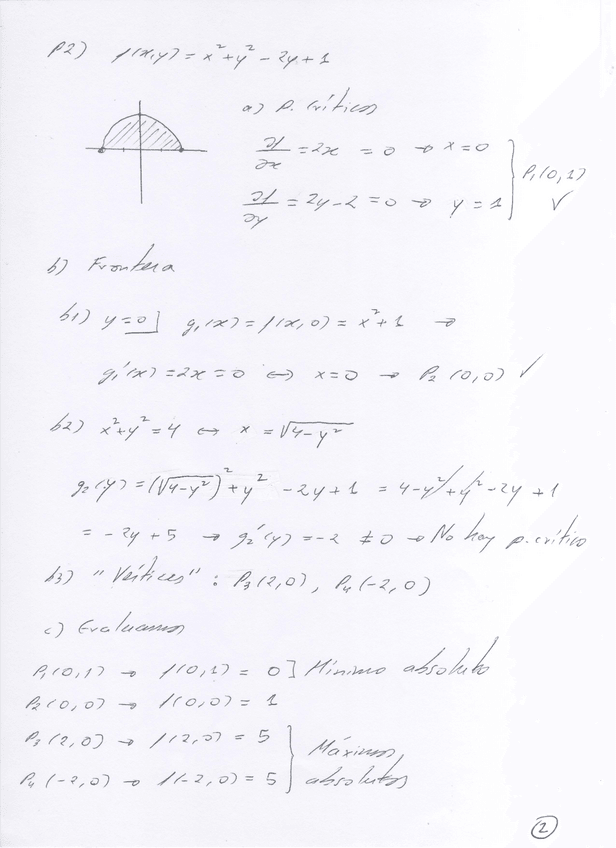 P2) f(x,y) = x² + y² - 2y + 1
a) P. Críticos
∂f/∂x = 2x = 0 → x = 0
∂f/∂y = 2y - 2 = 0 → y = 1 } P₁(0,1) ✓
b) Frontera
b1) y = 0] g₁(x) = f(x,0) = x² + 1 →
g₁'(x) = 2x = 0 ↔ x = 0 → P₂(0,0) ✓
b2) x² + y² = 4 ↔ x = √(4-y²)
g₂(y) = (√(4-y²))² + y² - 2y + 1 = 4 - y² + y² - 2y + 1
= -2y + 5 → g₂'(y) = -2 ≠ 0 → No hay p. crítico
b3) "Vértices" : P₃(2,0), P₄(-2,0)
c) Evaluamos
P₁(0,1) → f(0,1) = 0] Mínimo absoluto
P₂(0,0) → f(0,0) = 1
P₃(2,0) → f(2,0) = 5 } Máximos
P₄(-2,0) → f(-2,0) = 5 } absolutos
2